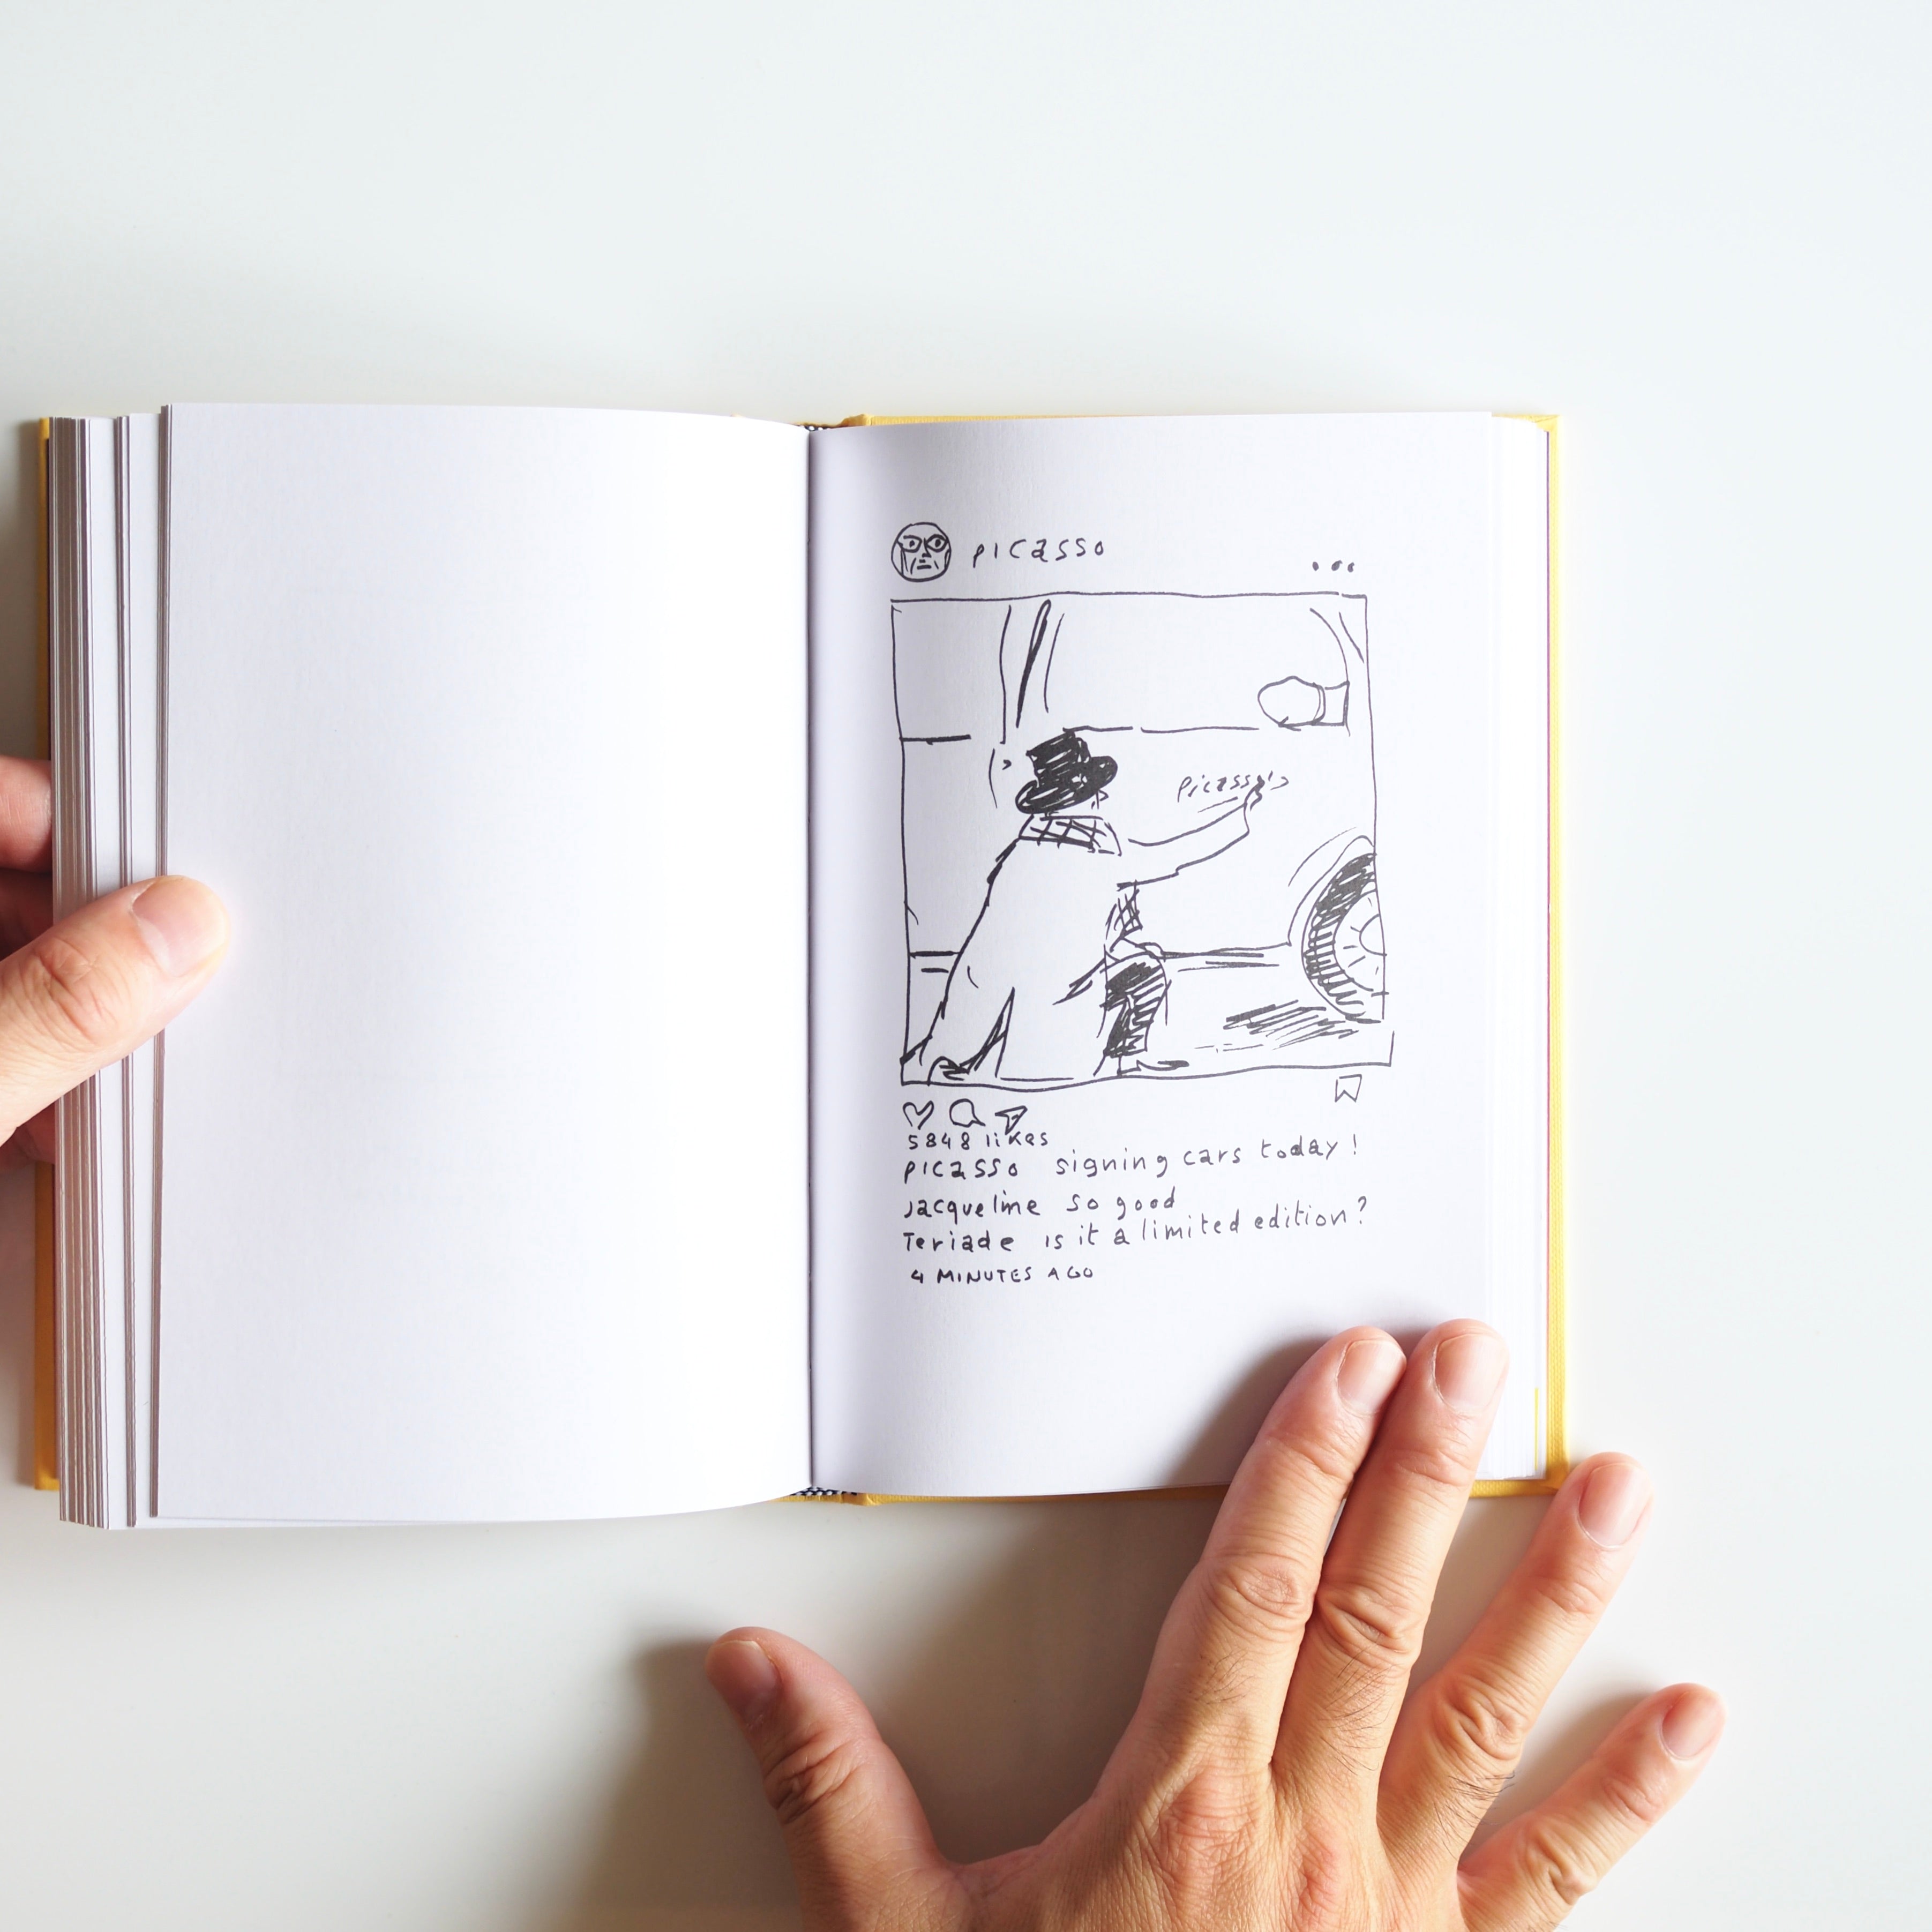 picasso
Picasso
5848 likes
picasso signing cars today!
Jacqueline so good
Teriade is it a limited edition?
4 MINUTES AGO